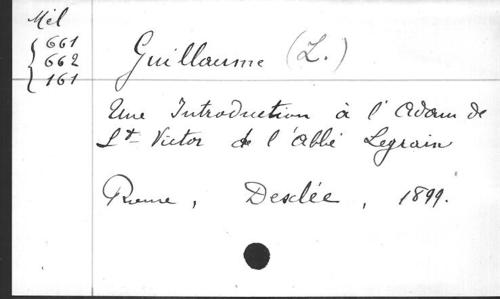 Mél
661
662
161
Guillaume (L.)
Une Introduction à l'Adam de
St- Victor de l'abbé Legrain
Rome, Desclée, 1899.